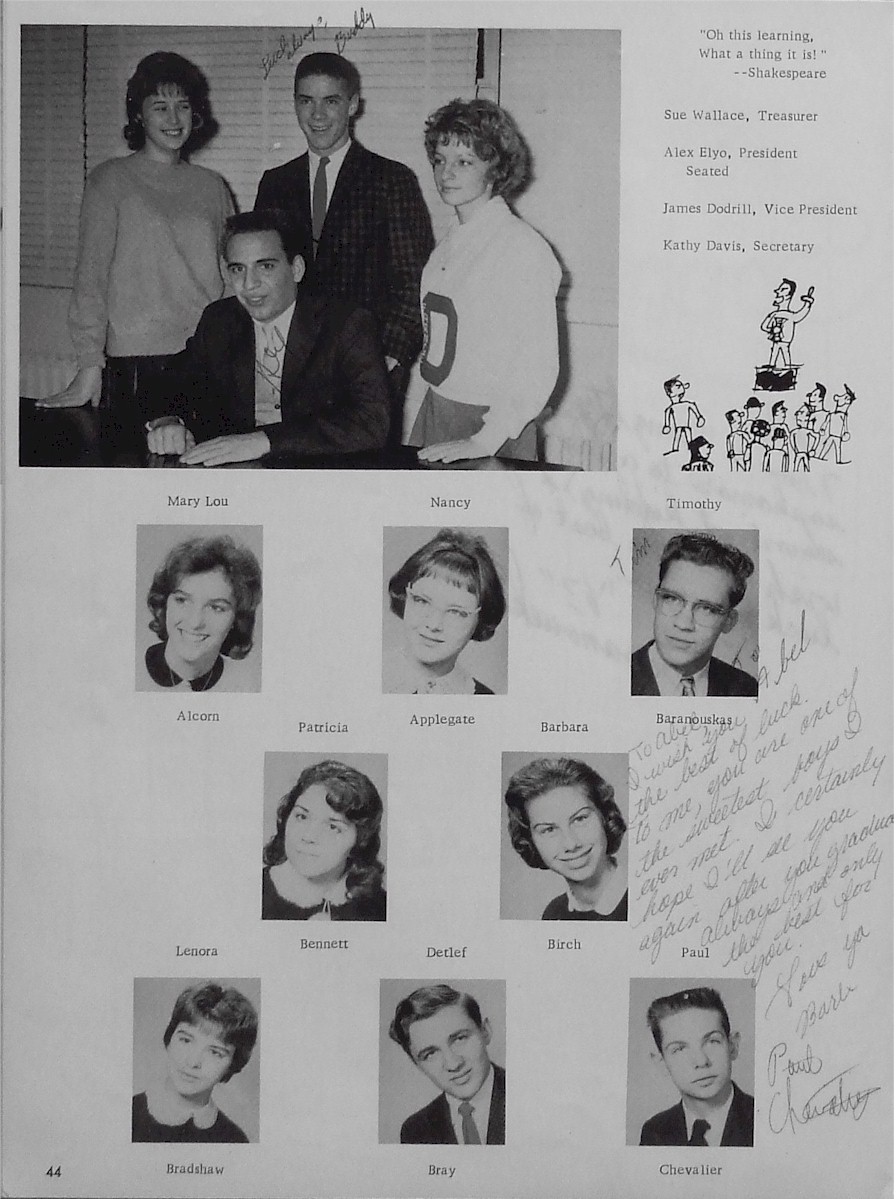 Luck always,
Buddy
"Oh this learning,
What a thing it is!"
--Shakespeare
Sue Wallace, Treasurer
Alex Elyo, President
Seated
James Dodrill, Vice President
Kathy Davis, Secretary
D
Mary Lou
Nancy
Timothy
Tim
To Abel
Alcorn
Applegate
Baranouskas
Patricia
Barbara
To Abel,
I wish you
the best of luck.
to me, you are one of
the sweetest boys I
ever met. I certainly
hope I'll see you
again after you gradua
always and only
the best for
you.
Love ya
Barb
Bennett
Birch
Lenora
Detlef
Paul
Paul
Chevalier
Bradshaw
Bray
Chevalier
44